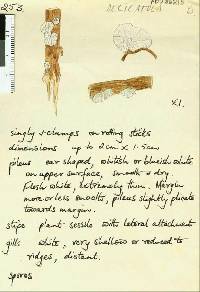 253.
DELICATULA
D
x1.
singly & clumps on rotting sticks
dimensions up to 2cm x 1.5cm
pileus ear shaped, whitish or blueish white
on upper surface, smooth & dry.
Flesh white, extremely thin. Margin
more or less smooth, pileus slightly plicate
towards margin.
stipe plant sessile with lateral attachment
gills white, very shallow or reduced to
ridges, distant.
spores